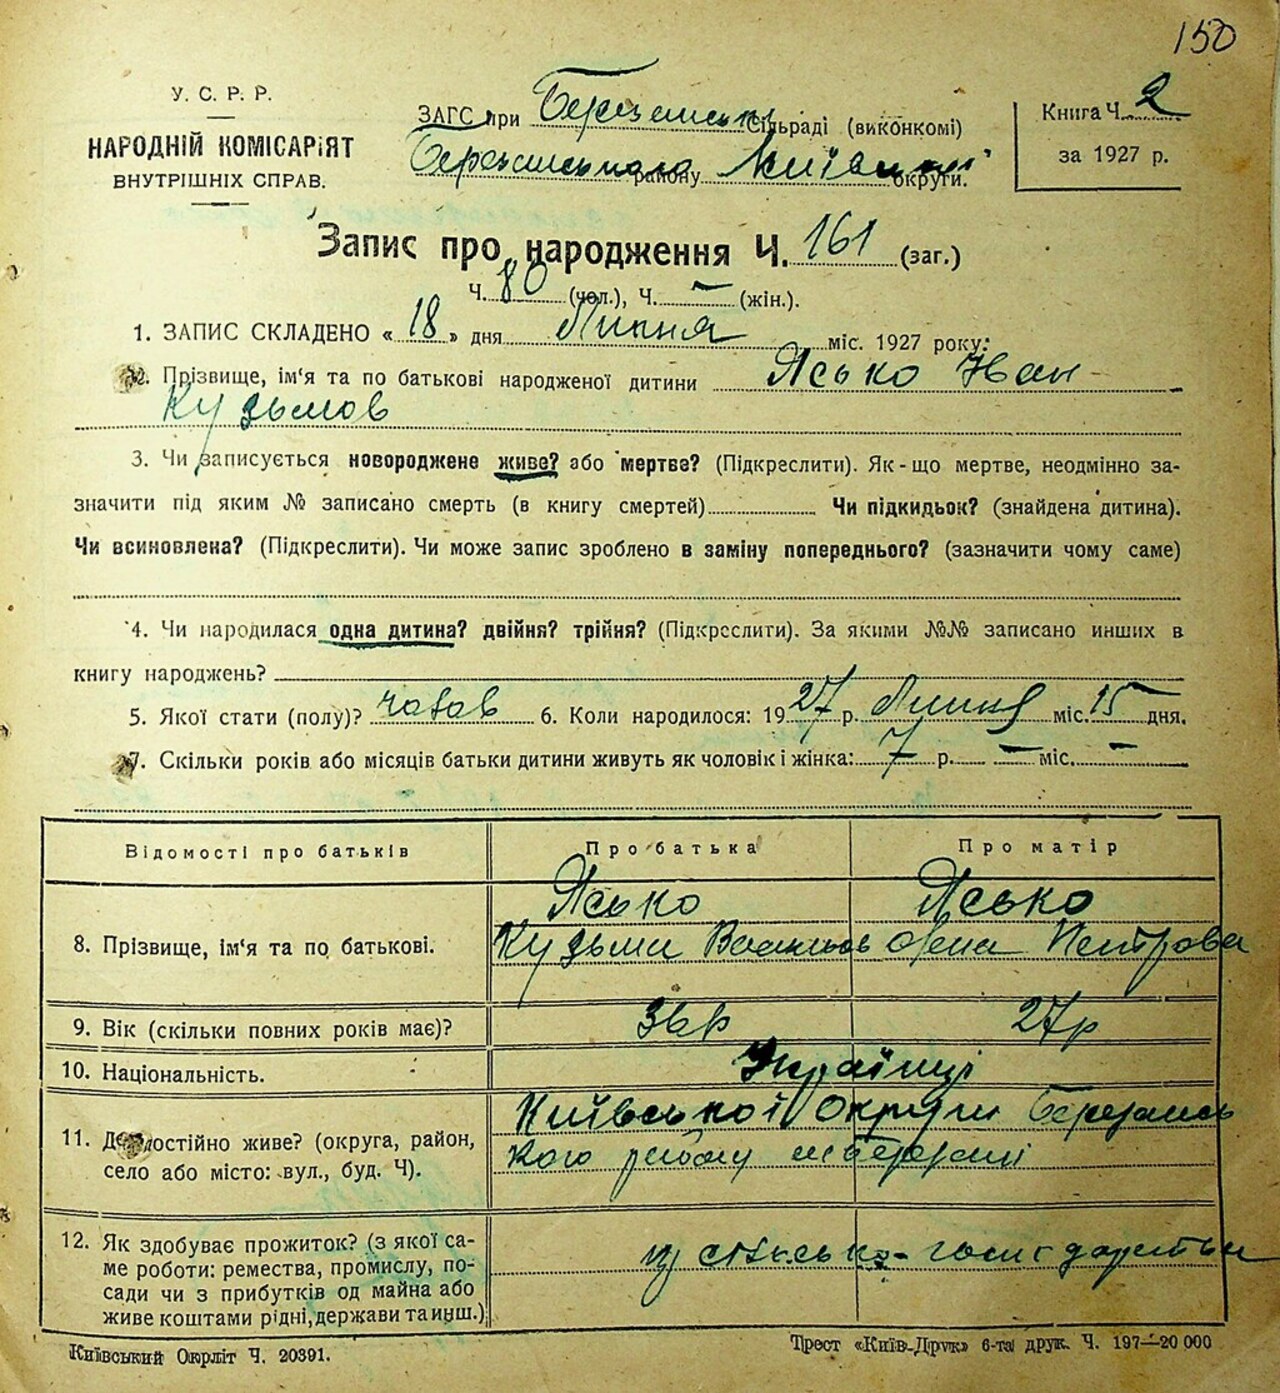 150
У. С. Р. Р.
НАРОДНІЙ КОМІСАРІЯТ
ВНУТРІШНІХ СПРАВ.
ЗАГС при Березанськ Сільраді (виконкомі)
Березанського району Київської округи.
Книга Ч. 2
за 1927 р.
Запис про народження Ч. 161 (заг.)
Ч. 80 (чол.), Ч. — (жін.).
1. ЗАПИС СКЛАДЕНО « 18 » дня Липня міс. 1927 року:
2. Прізвище, ім'я та по батькові народженої дитини Ясько Іван
Кузьмов
3. Чи записується новороджене живе? або мертве? (Підкреслити). Як-що мертве, неодмінно за-
значити під яким № записано смерть (в книгу смертей) Чи підкидьок? (знайдена дитина).
Чи всиновлена? (Підкреслити). Чи може запис зроблено в заміну попереднього? (зазначити чому саме)
4. Чи народилася одна дитина? двійня? трійня? (Підкреслити). За якими №№ записано инших в
книгу народжень?
5. Якої стати (полу)? чоловів 6. Коли народилося: 1927 р. Липня міс. 15 дня.
7. Скільки років або місяців батьки дитини живуть як чоловік і жінка: 7 р. — міс. —
Відомості про батьків
Про батька
Про матір
8. Прізвище, ім'я та по батькові.
Ясько
Ясько
Кузьма Васильов
Олена Петрова
9. Вік (скільки повних років має)?
36 р
27 р
10. Національність.
Українці
11. Де постійно живе? (округа, район,
село або місто: вул., буд. Ч).
Київської Округи Березансь
кого району м Березані
12. Як здобуває прожиток? (з якої са-
ме роботи: ремества, промислу, по-
сади чи з прибутків од майна або
живе коштами рідні, держави та инш.)
із сільсько-господарства
Київський Окрліт Ч. 20391.
Трест «Київ-Друк» 6-та друк. Ч. 197—20 000